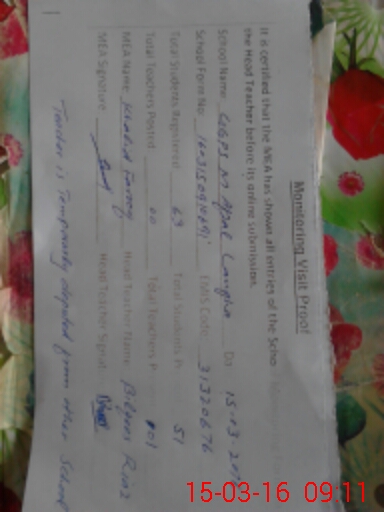 Monitoring Visit Proof
It is certified that the MEA has shown all entries of the Scho
the Head Teacher before its online submission.
School Name: GGPS M Afzal Langha Da 15-03-2016
School Form No: EMIS Code: 31320676
Total Students Registered: 69 Total Students P 51
Total Teachers Posted: 00 Total Teachers P 001
MEA Name: Khalid Farooq Head Teacher Name: Bilqees Riaz
MEA Signature Head Teacher Signat
Teacher is Temporarily deputed from other School
15-03-16 09:11